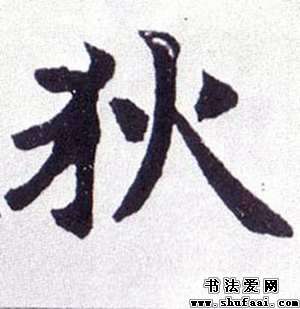 狄
书法爱网
www.shufaai.com